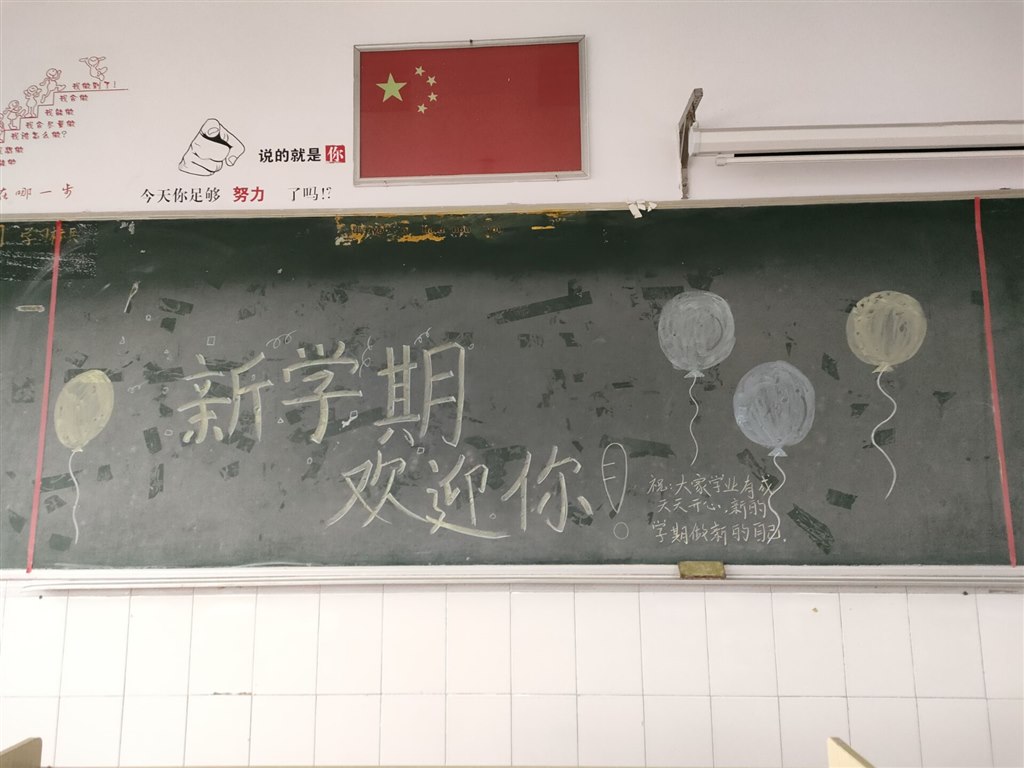 我做到了!
我会做
我能做
我会尽量做
我该怎么做?
在哪一步
说的就是你
今天你足够 努力 了吗!?
新学期
欢迎你!
祝:大家学业有成
天天开心,新的
学期做新的自己.